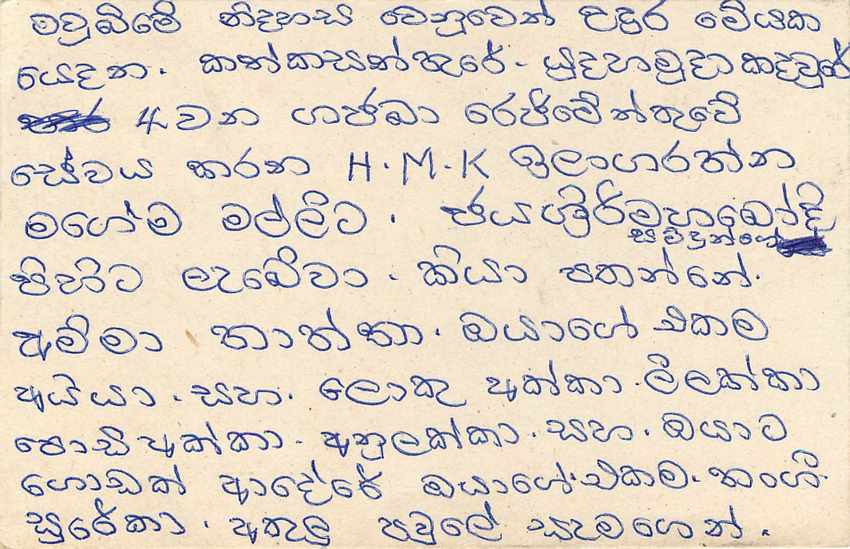 මව්බිමේ නිදහස වෙනුවෙන් උදුර මේයක
යෙදන. කන්කසන්තුරේ. යුදහමුදා කදවුරේ
4 වන ගජබා රෙජිමේන්තුවේ
සේවය කරන H.M.K ඉලංගරත්න
මගේම මල්ලිට. ජයශ්‍රිරිමහබෝදි
සමිදුන්ගේ
පිහිට ලැබේවා. කියා පතන්නේ.
අම්මා තාත්තා. ඔයාගේ එකම
අයියා. සහ. ලොකු අක්කා. ලීලක්කා
පොඩිඅක්කා. අනුලක්කා. සහ. ඔයාට
ගොඩක් ආදේරේ ඔයාගේ. එකම. නංගි.
සුරේකා. අතුලු පවුලේ සැමගෙන්.